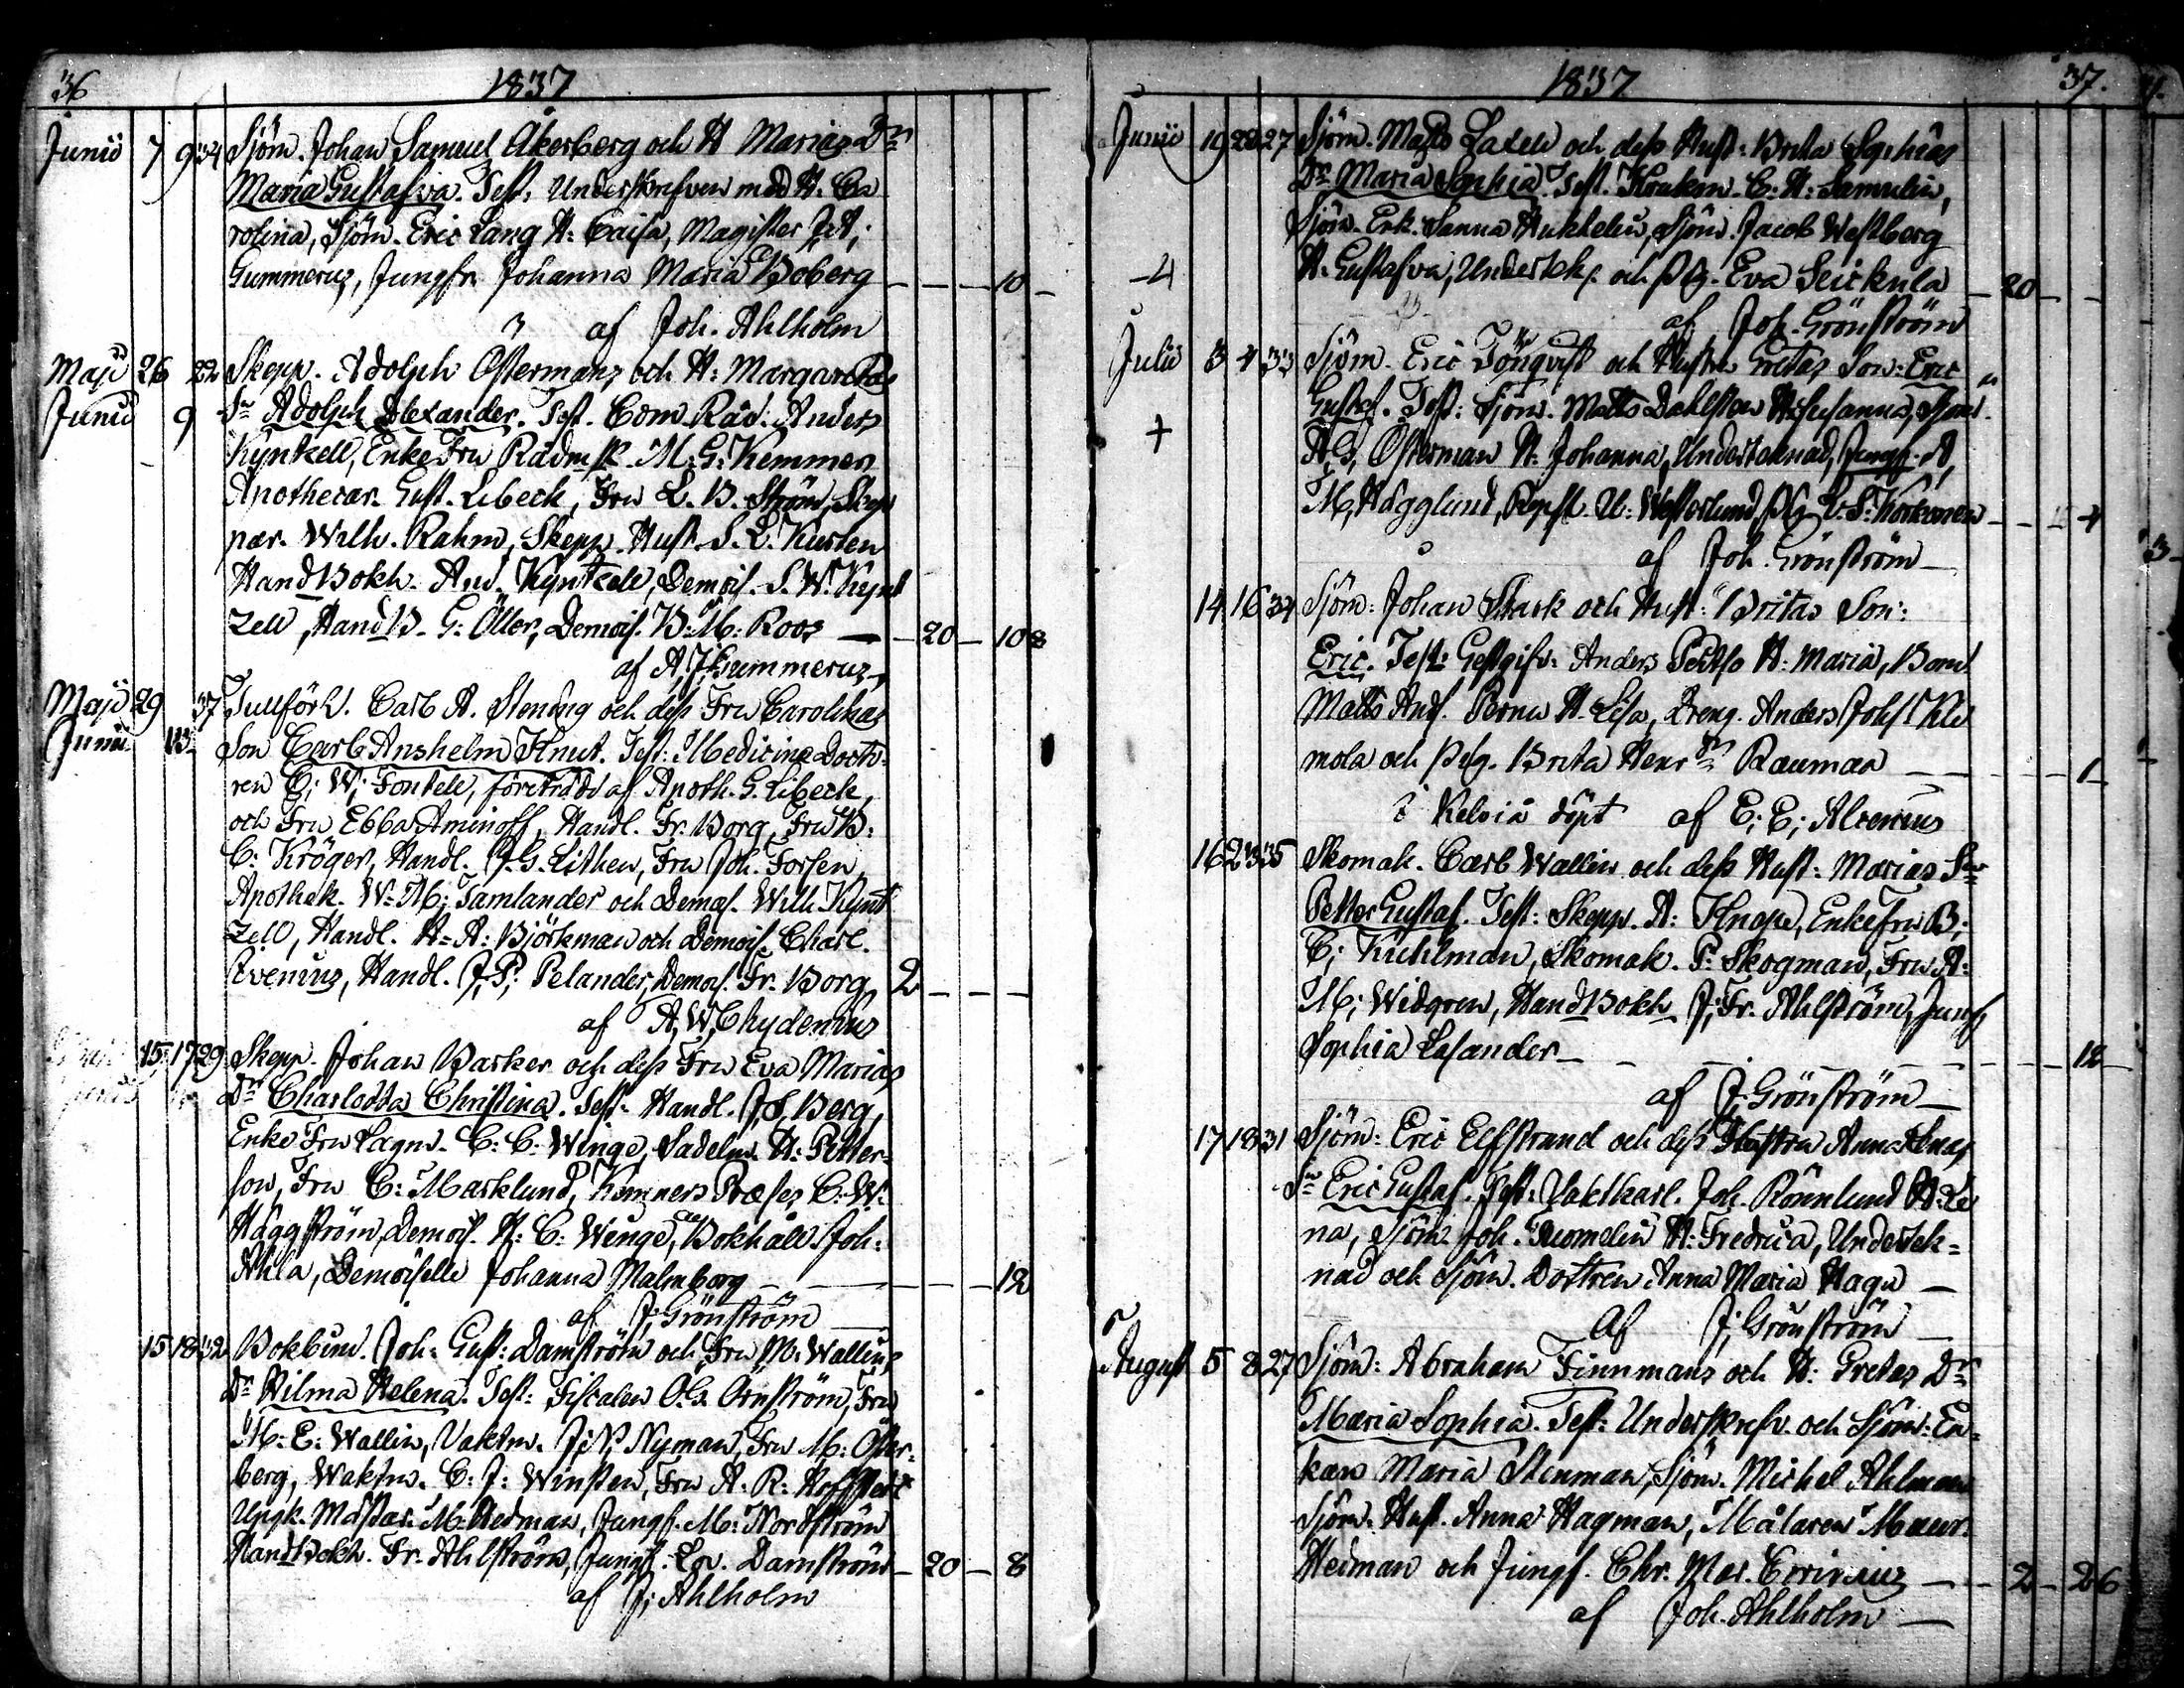 36 1837
Junii 7 9 34 Sjöm. Johan Samuel Åkerberg och H Marias Dr
Maria Gustafva. Test: Underskrefven med H. Ca
rolina, Sjöm. Eric Lang H: Caisa, Magister J. A.
Gummerus, Jungfr. Johanna Maria Boberg — — — 10 —
af Joh. Ahlholm
Maji 26 22 Skepp. Adolph Ostermans och H: Margaretas
Junii 9 Sn Adolph Alexander. Test. Com. Råd: Anders
Kyntzell, Enke Fru Rådmsk. M: G: Kemmer
Apothecar. Gust. Libeck, Fru L. B. Ström, Skep
par. Wilh. Rahm, Skepp. Hust. S. L. Kursten
HandBokh. And. Kyntzell, Demois. S. W. Kynt
zell, HandB. G: Öller, Demois. B: M: Roos — — 20 — 10 8
af A. J. Gummerus
Maji 29 37 Tullförv. Carl A. Stening och dess Fru Carolinas
Junii 13 Son Carl Anshelm Knut. Test: Medicine Docto
ren C; W; Fontell, företrädd af Apoth. G. Libeck,
och Fru Ebba Aminoff, Handl. Fr. Borg, Fru B:
C: Kröger, Handl. P. G. Lithen, Fru Joh. Forsen,
Apothek. W: M; Tamlander och Demois. Wilh Kynt
zell, Handl. A: A: Björkman och Demois. Charl.
Handl. J. P. Pelander, Demois. Fr. Borg 2 — — —
af A, W, Chydenius
15 17 29 Skepp. Johan Barker och dess Fru Eva Marias
Dr Charlotta Christina. Test: Handl. J. Berg,
Enke Fru C: C: Winge, Sadelm. A: Petter-
son, Fru C: Marklund, Kemners Præses C: W:
Häggström, Demois. A: C: Wenge, Bokhåll. Joh:
Ahla, Demoiselle Johanna Malmborg — — — 12
af J; Grönström
15 18 32 Bokbind. Joh: Gust: Damström och Fru M: Wallins
Dr Hilma Helena. Test: Fiscalen O. G. Ornström, Fru
M: E: Wallin, Vaktm. J; N; Nyman, Fru M: Öster-
berg, Waktm. C: J: Winsten, Fru A: R: Hoffstedt
M: Hedman, Jungf. M: Nordström
HandBokh. Fr. Ahlström, Jungf. Lov. Damström — 20 — 8
af J; Ahlholm
1837 37.
Junii 19 20 27 Sjöm. Matts Ladell och dess Hust: Brita Sophias
Dr Maria Sophia. Test. Krukm. C: H: Samulin,
Sjöm. Enk. Sanna Sjöm. Jacob Westberg
—4 H. Gustafva, Underskr. och Pig. Eva Seickula — 20 — —
af Joh. Grönström
Julii 3 4 33 Sjöm. Eric Tönqvist och Hustru Gretas Son: Eric
Gustaf. Test: Sjöm. Matts Dahlsten H: Susanna, Sjöm.
+ A, G, Österman H. Johanna, Undertecknad, Jungf. A,
M, Hägglund, Repsl. U: Westerlund, Pig L: S: Korkonen — — 4
af Joh. Grönström —
14 16 34 Sjöm: Johan Stark och Hust: Britas Son:
Eric. Test: Gestgifv: Anders Pedso H: Maria, Bond.
Matts And. H. Lisa, Dreng. Anders Johs Kle
mola och Pig. Brita Henr Dr Raumar — — — 1 —
i Kelviå döpt af E; E; Alcenius
16 23 35 Skomak. Carl Wallin och dess Hust: Marias Son
Petter Gustaf. Test: Skepp. A: Knape, Enkefru B;
C; Kuhlman, Skomak. P: Skogman, Fru A:
M; Widgren, HandBokh. J; Fr. Ahlström, Jungf
Sophia Lasander — — — 12 —
af J; Grönström —
17 18 31 Sjöm: Eric Elfstrand och dess Hustru Anna Lenas
Sn Eric Gustaf. Test: Vaktkarl. Joh. Rönnlund H: Le
na, Sjöm. Joh. Tuomelin H: Fredrica, Undertek-
nad och Sjöm. Dottren Anna Maria Haga —
Af J; Grönström —
August 5 8 27 Sjöm: Abraham Finnmans och H: Gretas Dr
Maria Sophia. Test: Underskrefv. och Sjöm: En-
kan Maria Stenman, Sjöm. Michel Ahlman
Sjöm. Hust. Anna Hagman, Målaren Maur.
Hedman och Jungf. Chr. Mar. — — 2 — 26
af Joh. Ahlholm —